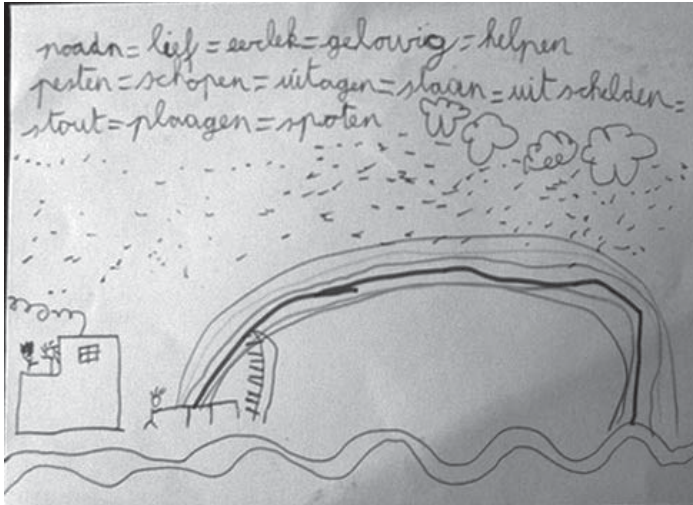 = lief = eerlek = gelowig = helpen
pesten = schopen = uitagen = slaan = uit schelden =
stout = plaagen = spoten